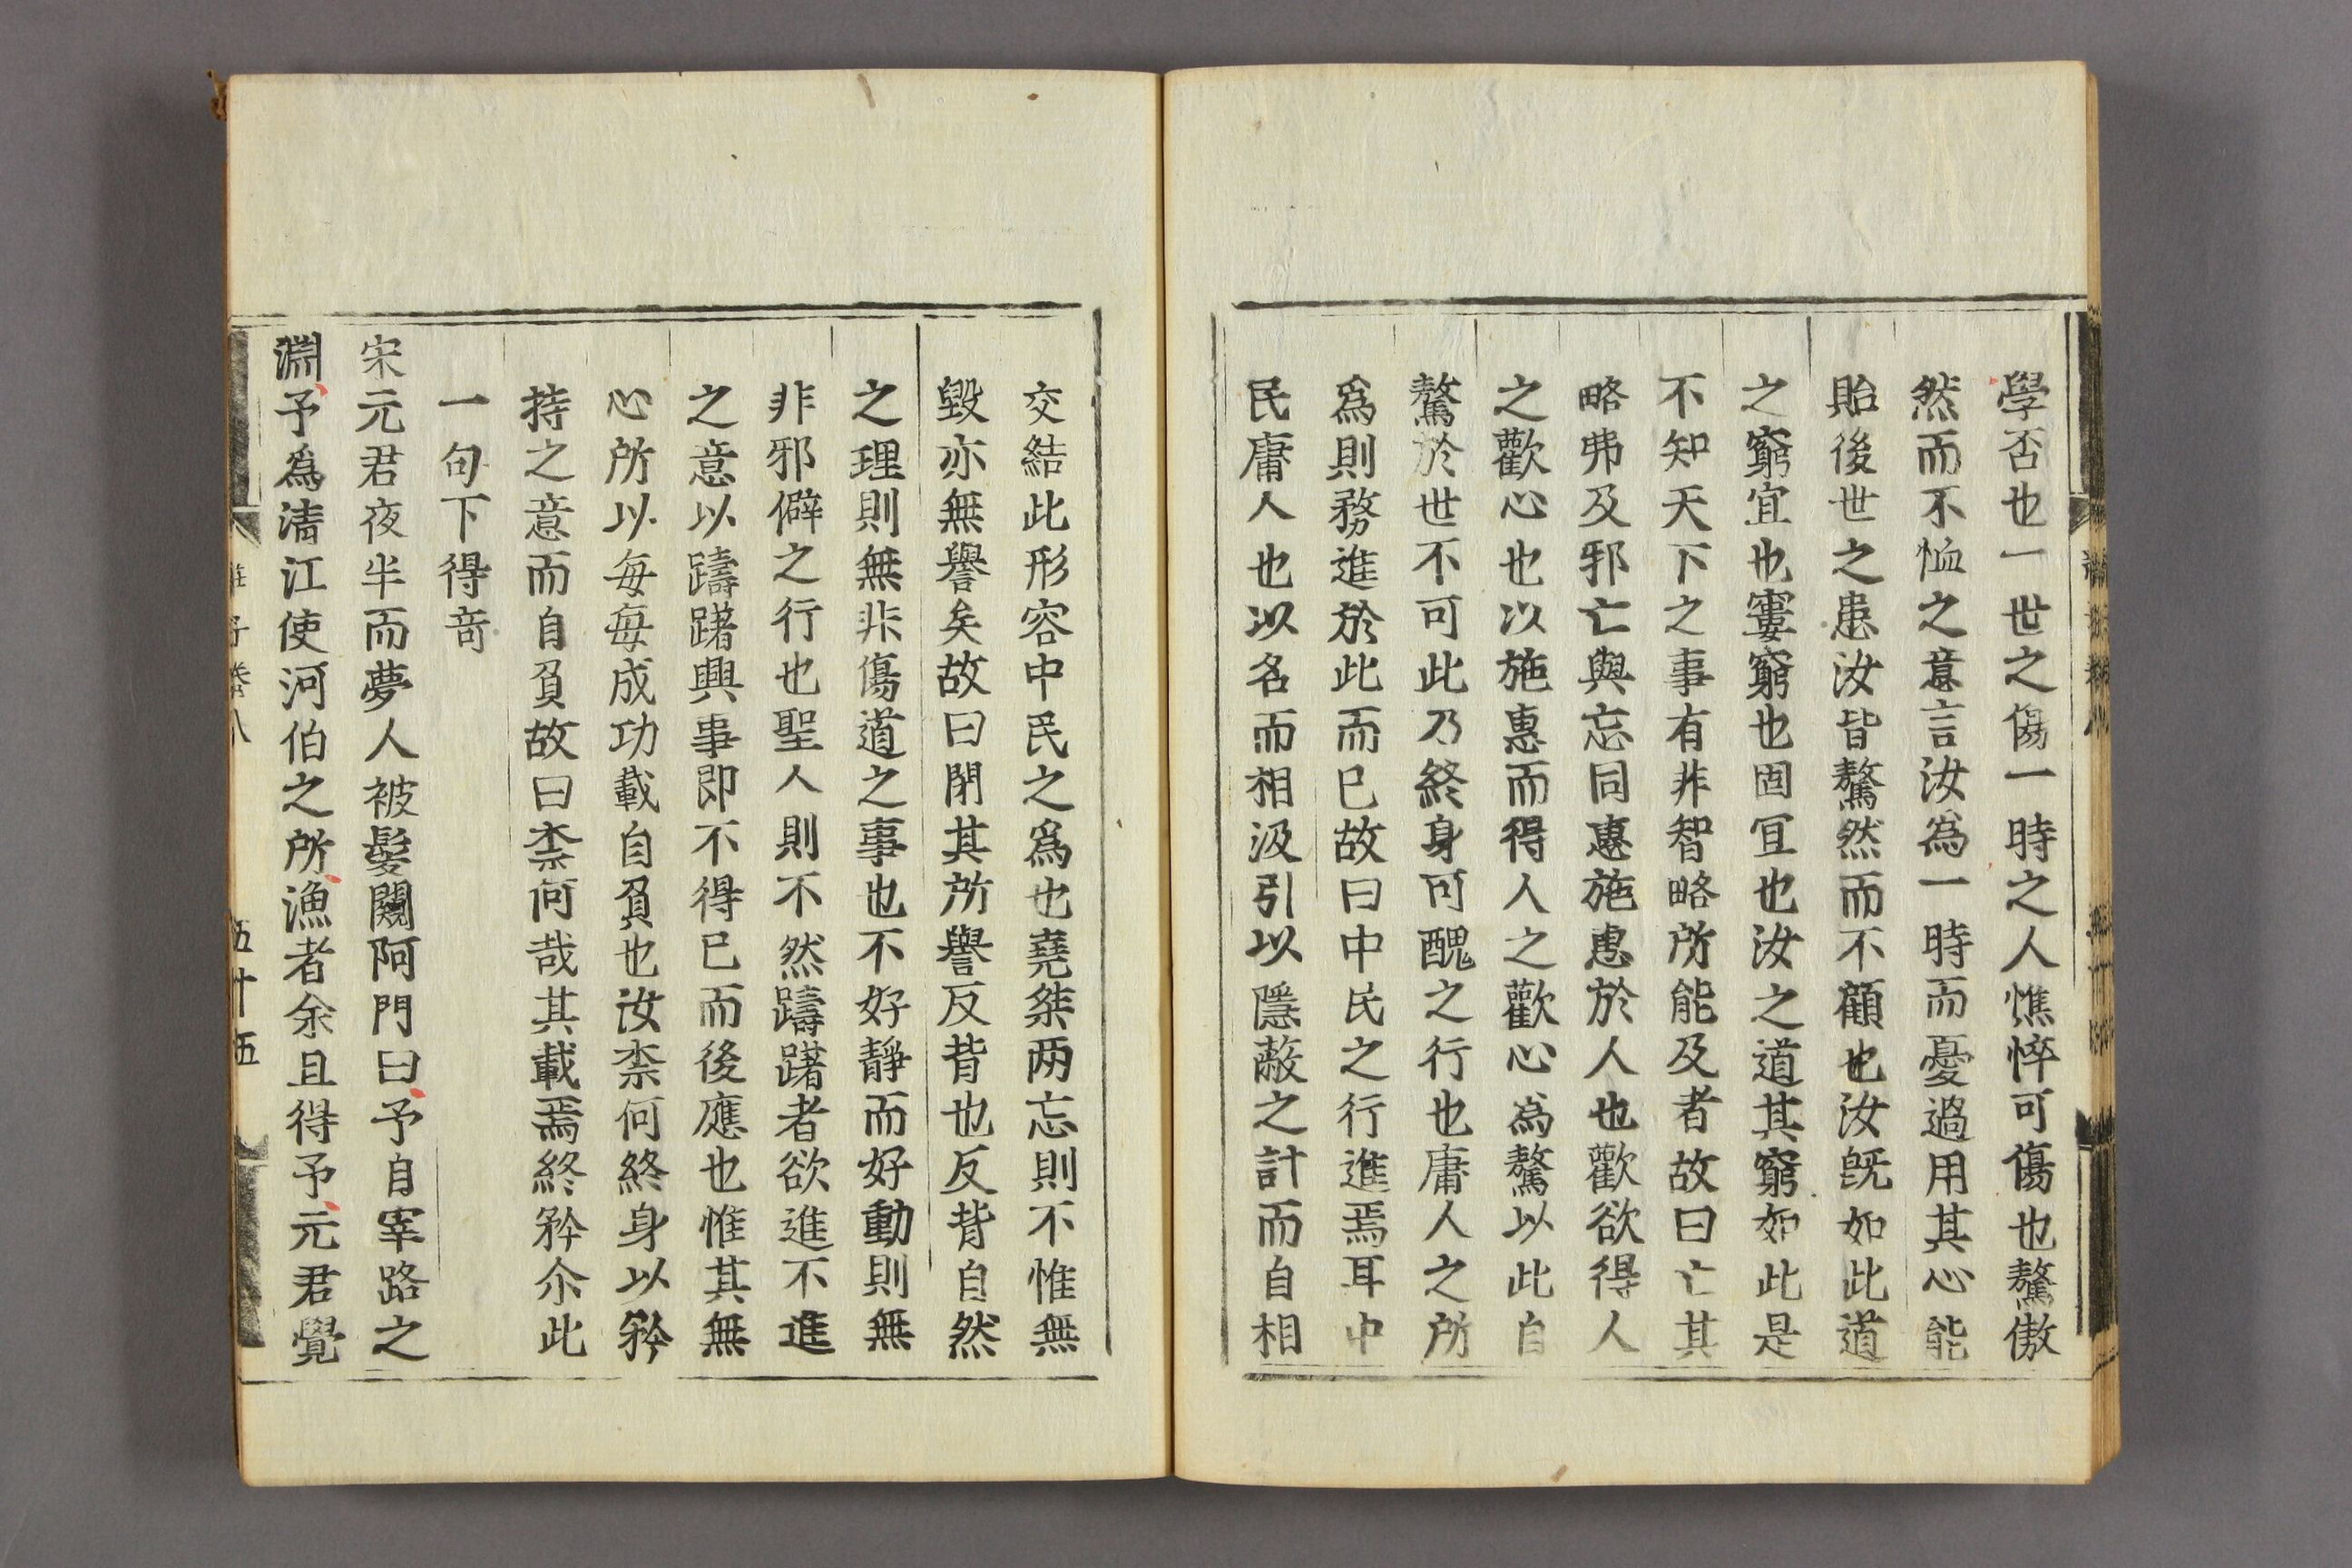 學否也一世之傷一時之人憔悴可傷也驁傲
然而不恤之意言汝為一時而憂過用其心能
貽後世之患汝皆驁然而不顧也汝旣如此道
之窮宜也窶窮也固冝也汝之道其窮如此是
不知天下之事有非智略所能及者故曰亡其
略弗及邪亡與忘同惠施惠於人也歡欲得人
之歡心也以施惠而得人之歡心為驁以此自
驁於世不可此乃終身可醜之行也庸人之所
爲則務進於此而已故曰中民之行進焉耳中
民庸人也以名而相汲引以隱蔽之計而自相
交結此形容中民之爲也堯桀两忘則不惟無
毀亦無譽矣故曰閉其所譽反背也反背自然
之理則無非傷道之事也不好靜而好動則無
非邪僻之行也聖人則不然躊躇者欲進不進
之意以躊躇興事即不得已而後應也惟其無
心所以每每成功載自負也汝柰何終身以矜
持之意而自負故曰柰何哉其載焉終矜尒此
一句下得竒
宋元君夜半而夢人被髮闚阿門曰予自宰路之
淵予爲清江使河伯之所漁者余且得予元君覺
莊子卷八
五十五